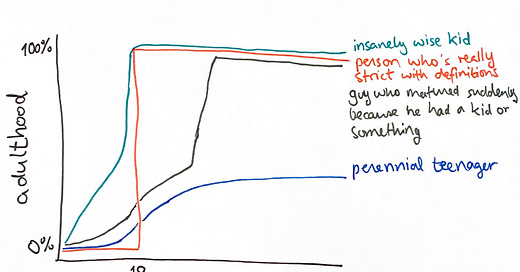 100%
insanely wise kid
person who's really
strict with definitions
guy who matured suddenly
because he had a kid or
something
adulthood
perennial teenager
0%
18